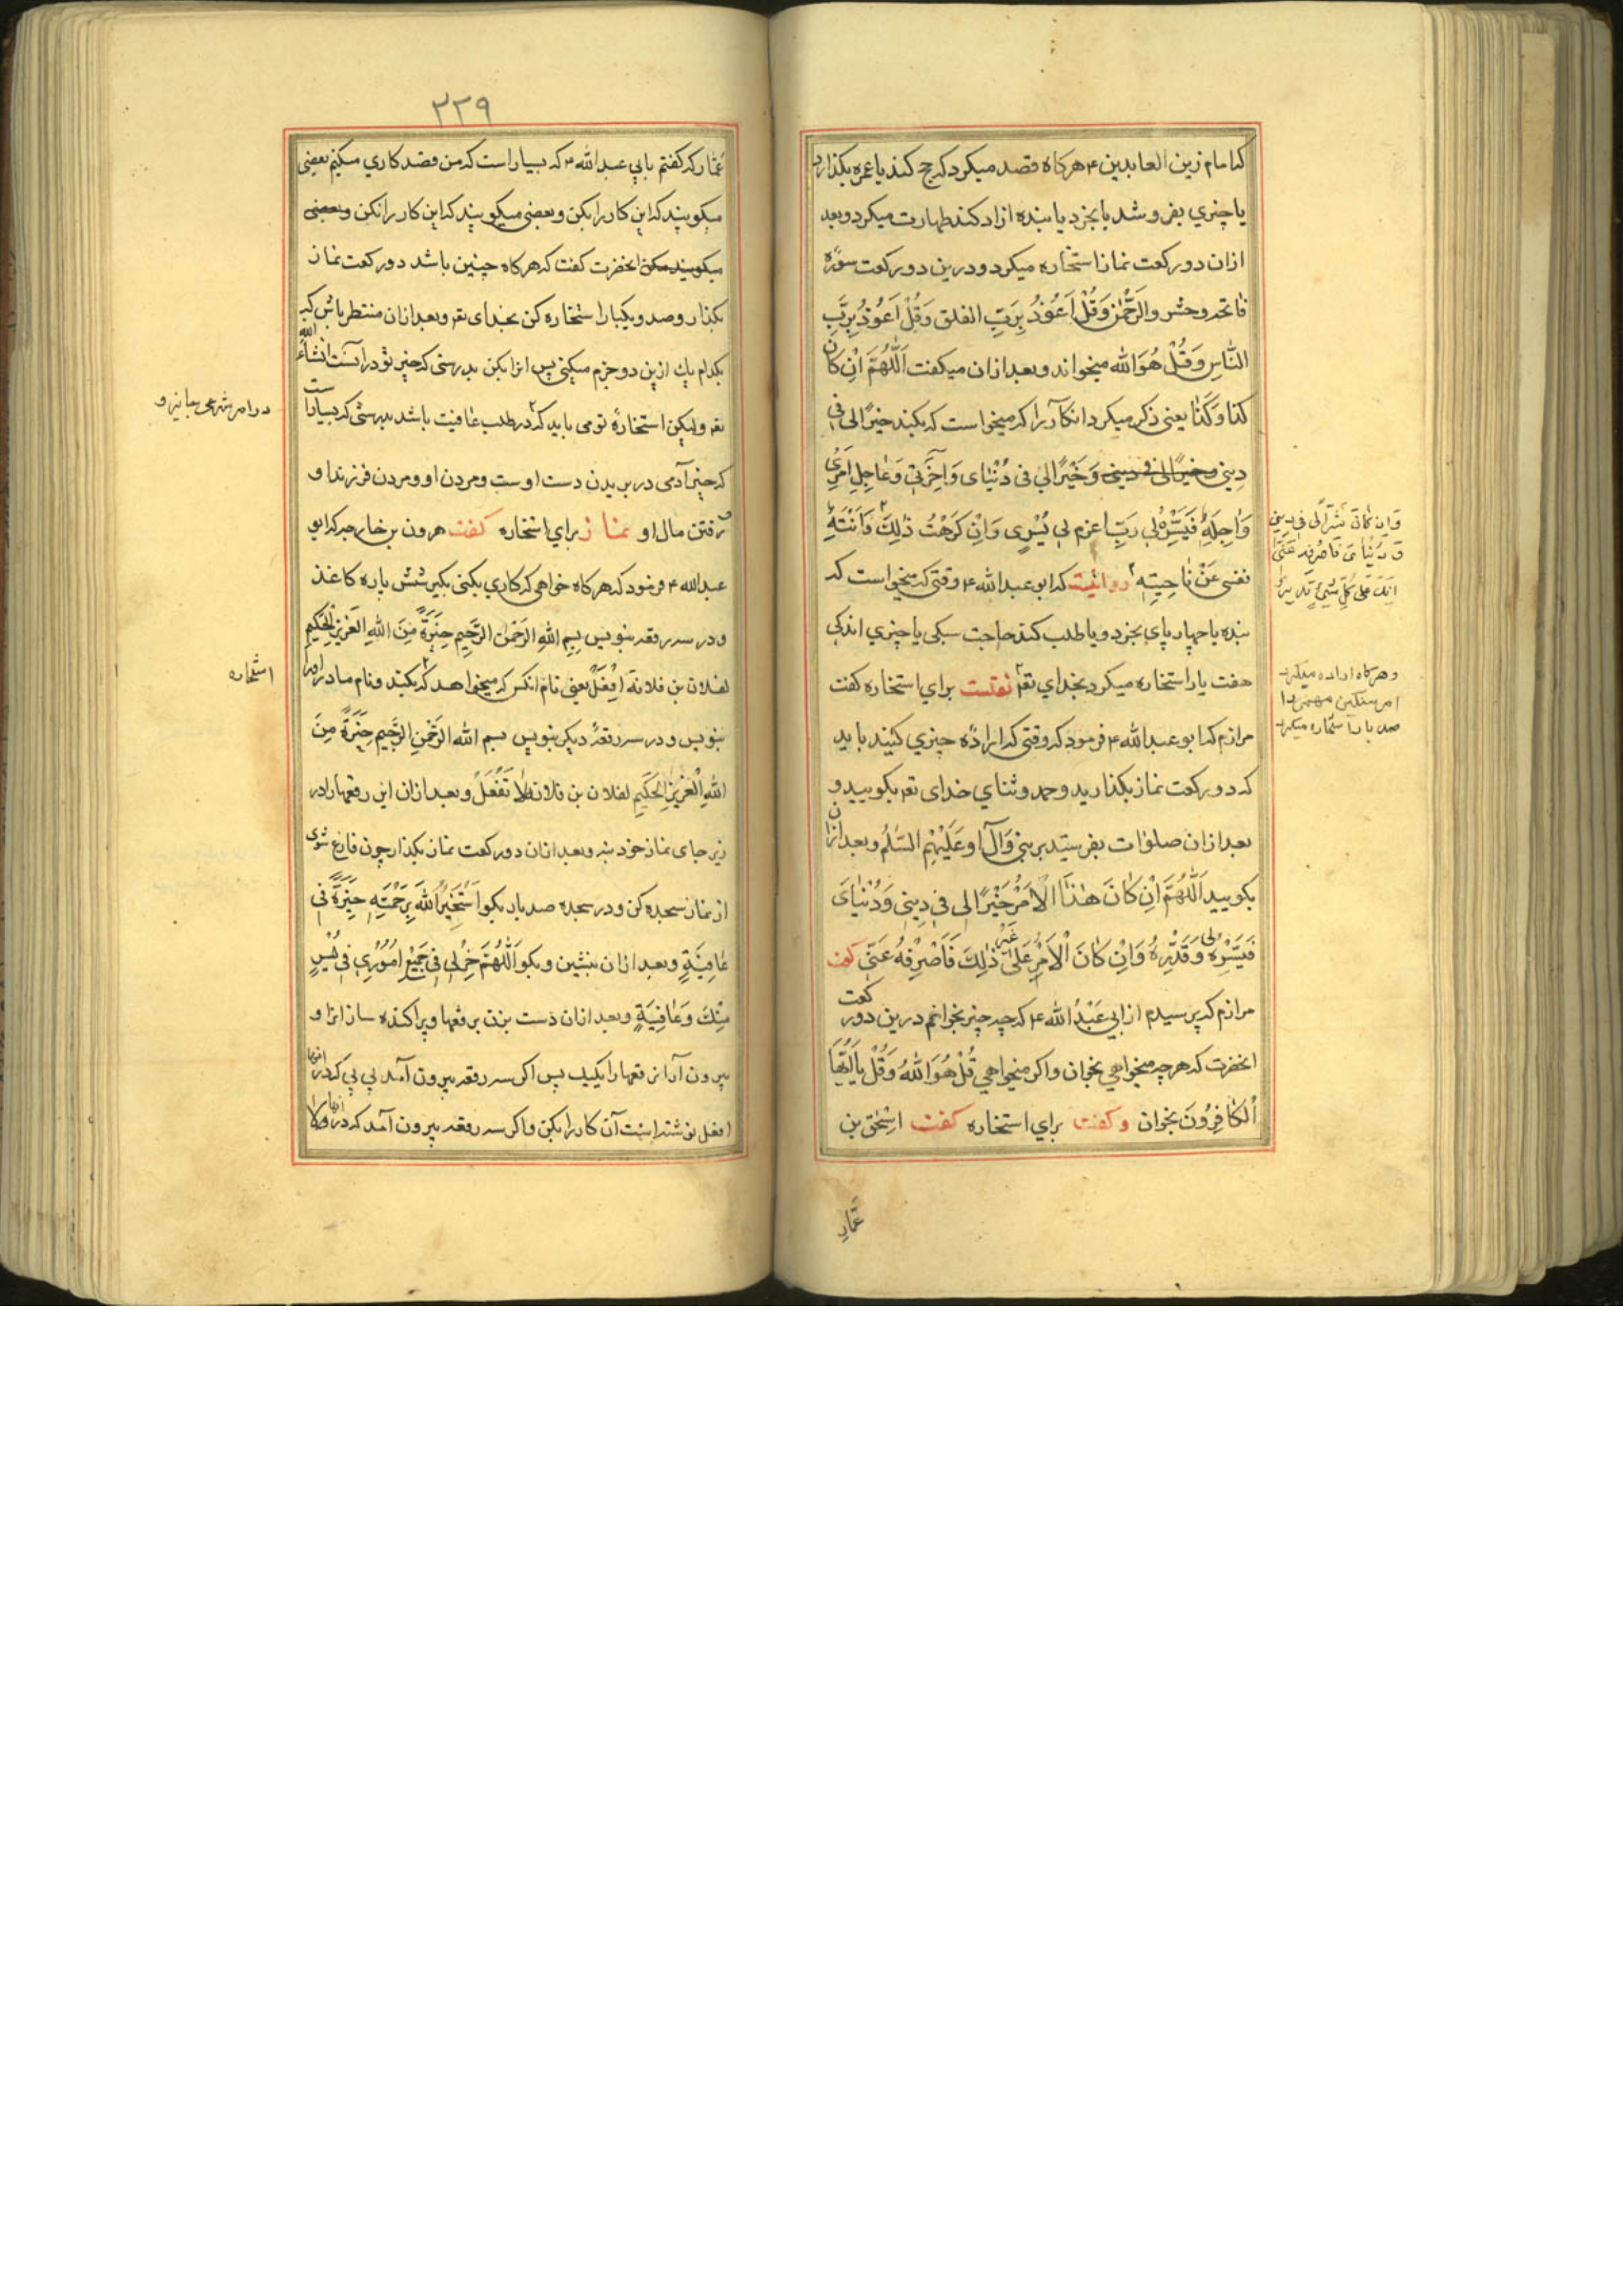 که امام زین العابدین ۴ هرکاه قصد میکرد که حج کند یا عمره بکذارد
یا چیزي بفروشد یا بخرد یا بنده ازاد کند طهارت میکرد و بعد
ازان دو رکعت نماز استخاره میکرد و درین دو رکعت سورهٔ
فاتحه وحشر والرَّحْمٰن وَقُلْ اَعُوْذُ بِرَبِّ الفلق وَقُلْ اَعُوْذُ بِرَبِّ
النَّاسِ وَقُلْ هُوَ اللّٰه میخواند و بعد ازان میکفت اَللّٰهُمَّ اِنْ کَانَ
کذا وَکَذَا یعنی ذکر میکرد انکار را که میخواست که بکند خیرًا لی فی
دِینِی وَخَیْرًا لیْ فی دُنْیٰایَ وَاٰخِرَتِی وَعٰاجِلِ اَمْرِی
وَاٰجِلِهِ فَیَسِّرْهُ لِی رَبِّ اعزم لی یُسْرِی وَاِنْ کَرِهْتُ ذٰلِكَ وَاَبَتْهُ
نفسی عَنْ نٰاحِیَتِهِ روائیت که ابو عبدالله ۴ وقتی که میخواست که
بنده یا چهارپای بخرد و یا طلب کند حاجت سبکی یا چیزي اندکی
هفت بار استخاره میکرد بخدای تعم نقلست براي استخاره کفت
مرازم که ابو عبدالله ۴ فرمود که وقتی که ارادهٔ چیزي کنید باید
که دو رکعت نماز بکذارید وحمد وثنای خدای تعم بکویید و
بعد ازان صلوات بفرستید بر نبی وَآلِ او عَلَیْهِم السَّلٰمُ و بعد ازان
بکویید اَللّٰهُمَّ اِنْ کٰانَ هٰذَا الْاَمْرُ خَیْرًا لی فی دِینِی وَدُنْیٰایَ
فَیَسِّرْهُ لی وَقَدِّرْهُ وَاِنْ کٰانَ الْاَمْرُ عَلیٰ غَیْرِ ذٰلِكَ فَاصْرِفْهُ عَنّی کفت
مرازم که پرسیدم از ابی عَبْدُ الله ۴ که چه چیز بخوانم درین دو رکعت
انحضرت که هرچه میخواهی بخوان واکر میخواهی قُلْ هُوَ اللّٰهُ وَقُلْ یٰا اَیُّهَا
الْکٰافِرُونَ بخوان وکفت براي استخاره کفت اسْحٰق بن
وَاِن کٰانَ شَرًّا لی فی دِینِی
وَ دُنْیٰایَ فَاصْرِفْهُ عَنِّی
اِنَّكَ عَلیٰ کُلِّ شَیْءٍ قَدِیرٌ
وهرکاه اراده میکرد
امر سنکین مهمی را
صد بار استخاره میکرد
عَمّار
۳۳۹
عَمّار که کفتم بابی عبدالله ۴ که بسیار است که من قصد کاري میکنم بعضی
میکویند که این کار را بکن وبعضی میکویند که این کار را نکن وبعضی
میکویند مکن انحضرت کفت که هرکاه چنین باشد دو رکعت نماز
بکذار وصد ویکبار استخاره کن بخدای تعم وبعد ازان منتظر باش که
بکدام یك ازین دو جزم میکنی پس انرا بکن بدرستی که خیر تو درانست انشاءالله
تعم ولیکن استخارهٔ تو می باید که در طلب عافیت باشد بدرستی که بسیار است
که خیر آدمی در بریدن دست اوست ومردن او ومردن فرزند او
ورفتن مال او نماز براي استخاره کفت هرون بن خارجه که ابو
عبدالله ۴ فرمود که هرکاه خواهی که کاري بکنی بکیر شش پاره کاغذ
و در سه رقعه بنویس بِسمِ اللّٰهِ الرَّحْمٰنِ الرَّحِیمِ خِیَرَةً مِنَ اللّٰهِ الْعَزِیزِ الْحَکِیمِ
لفلان بن فلانة اِفْعَلْ یعنی نام انکس که میخواهد که بکند ونام مادر او را
بنویس و در سه رقعهٔ دیکر بنویس بسم اللّٰه الرَّحْمٰنِ الرَّحِیم خِیَرَةً مِنَ
اللّٰهِ الْعَزِیزِ الْحَکِیمِ لفلان بن فلانة لا تَفْعَلْ وبعد ازان این رقعها را در
زیر جای نماز خود بنه وبعد ازان دو رکعت نماز بکذار چون فارغ شوی
از نماز سجده کن و در سجده صد بار بکو اَسْتَخِیرُ اللّٰهَ بِرَحْمَتِهِ خِیَرَةً فی
عٰافِیَةٍ وبعد ازان بنشین و بکو اَللّٰهُمَّ خِرْ لِی فی جَمِیْعِ اُمُوْرِی فی یُسْرٍ
مِنْكَ وَعٰافِیَةٍ وبعد ازان دست بزن برقعها وپراکنده ساز انرا و
بیرون آر ان رقعها را یکیك پس اکر سه رقعه بیرون آمد پی پی که در انها
افعل نوشته است آن کار را بکن واکر سه رقعه بیرون آمد که در انها ولا
در امر شرعی یا نیز و
استخاره